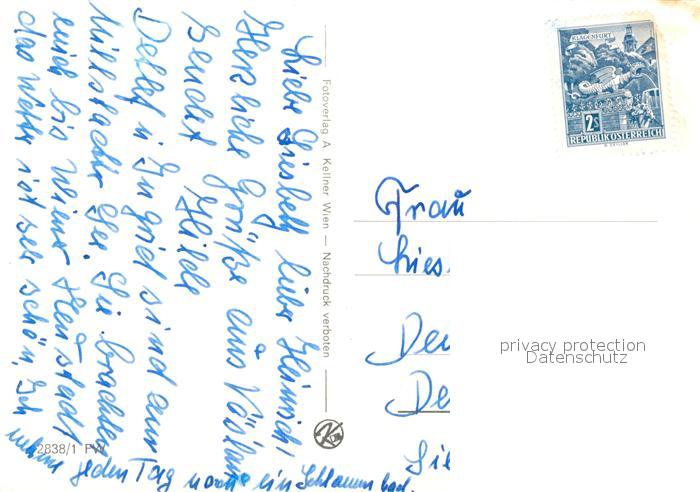 Liebe Liesbeth lieber Heinrich!
Herzliche Grüße aus Vöslau
sendet Hilde
Detlef u Ingrid sind am
Millstätter See. Sie brachten
mich bis Wiener Neustadt
das Wetter ist sehr schön, Ich
nehme jeden Tag noch ein Schlammbad.
2838/1 PW
Fotoverlag A. Kellner Wien — Nachdruck verboten
KLAGENFURT
2S
REPUBLIK ÖSTERREICH
Frau
Lies
De
De
Sie
privacy protection
Datenschutz